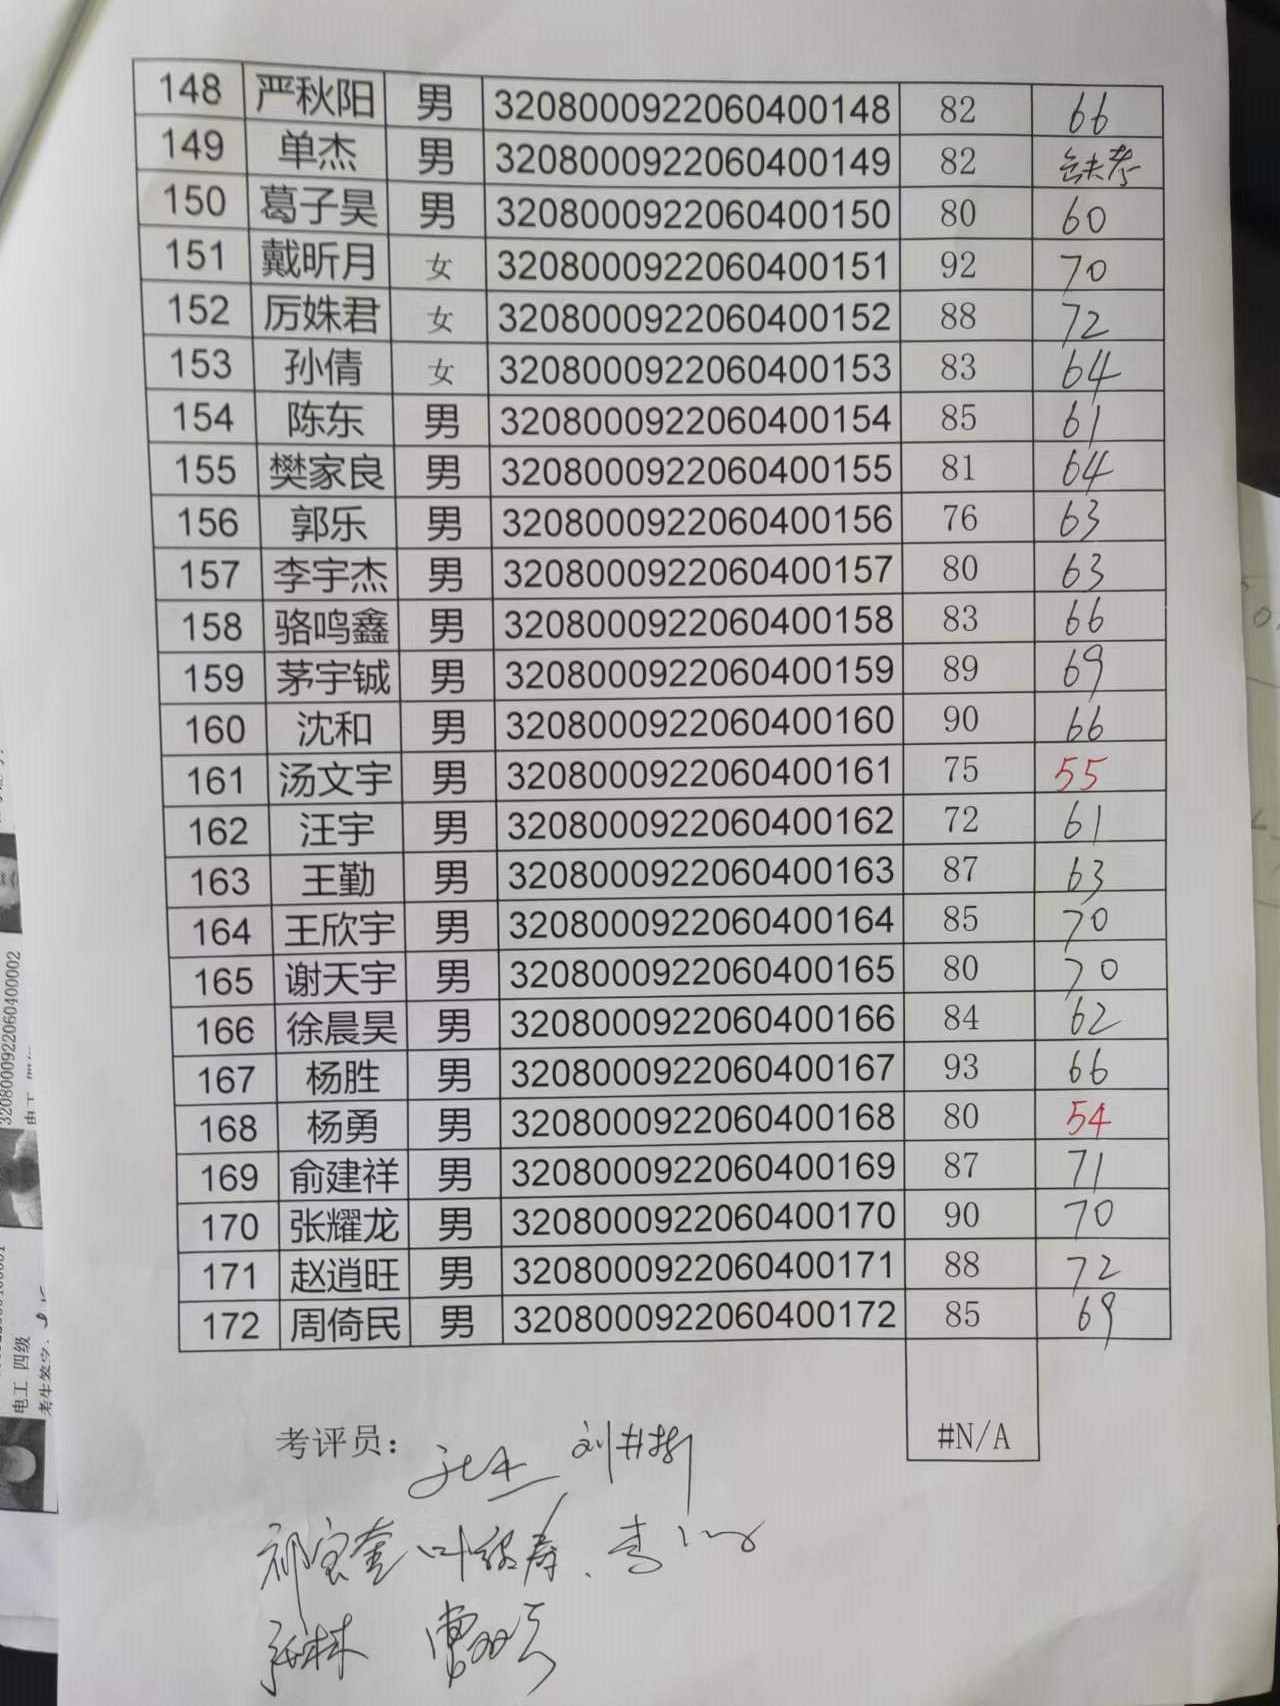 148 严秋阳 男 3208000922060400148 82 66
149 单杰 男 3208000922060400149 82 缺考
150 葛子昊 男 3208000922060400150 80 60
151 戴昕月 女 3208000922060400151 92 70
152 厉姝君 女 3208000922060400152 88 72
153 孙倩 女 3208000922060400153 83 64
154 陈东 男 3208000922060400154 85 61
155 樊家良 男 3208000922060400155 81 64
156 郭乐 男 3208000922060400156 76 63
157 李宇杰 男 3208000922060400157 80 63
158 骆鸣鑫 男 3208000922060400158 83 66
159 茅宇铖 男 3208000922060400159 89 69
160 沈和 男 3208000922060400160 90 66
161 汤文宇 男 3208000922060400161 75 55
162 汪宇 男 3208000922060400162 72 61
163 王勤 男 3208000922060400163 87 63
164 王欣宇 男 3208000922060400164 85 70
165 谢天宇 男 3208000922060400165 80 70
166 徐晨昊 男 3208000922060400166 84 62
167 杨胜 男 3208000922060400167 93 66
168 杨勇 男 3208000922060400168 80 54
169 俞建祥 男 3208000922060400169 87 71
170 张耀龙 男 3208000922060400170 90 70
171 赵逍旺 男 3208000922060400171 88 72
172 周倚民 男 3208000922060400172 85 69
#N/A
考评员：
祁宝奎
3208000922060400002
电工 四级
考生签字：